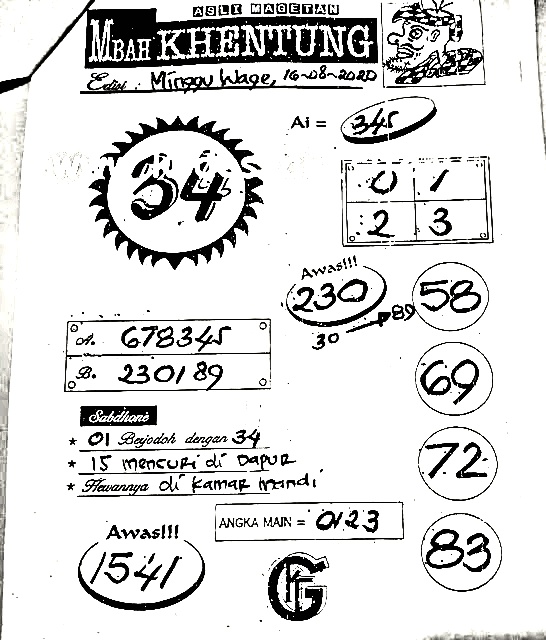 ASLI MAGETAN
MBAH KHENTUNG
Edisi : Minggu Wage, 16-08-2020
Ai = 345
34
0 1
2 3
Awas!!!
230
30 → 89
58
69
72
83
A. 678345
B. 230189
Sabdhone
* 01 Berjodoh dengan 34
* 15 mencuri di Dapur
* Hewannya di Kamar mandi
ANGKA MAIN = 0123
Awas!!!
1541